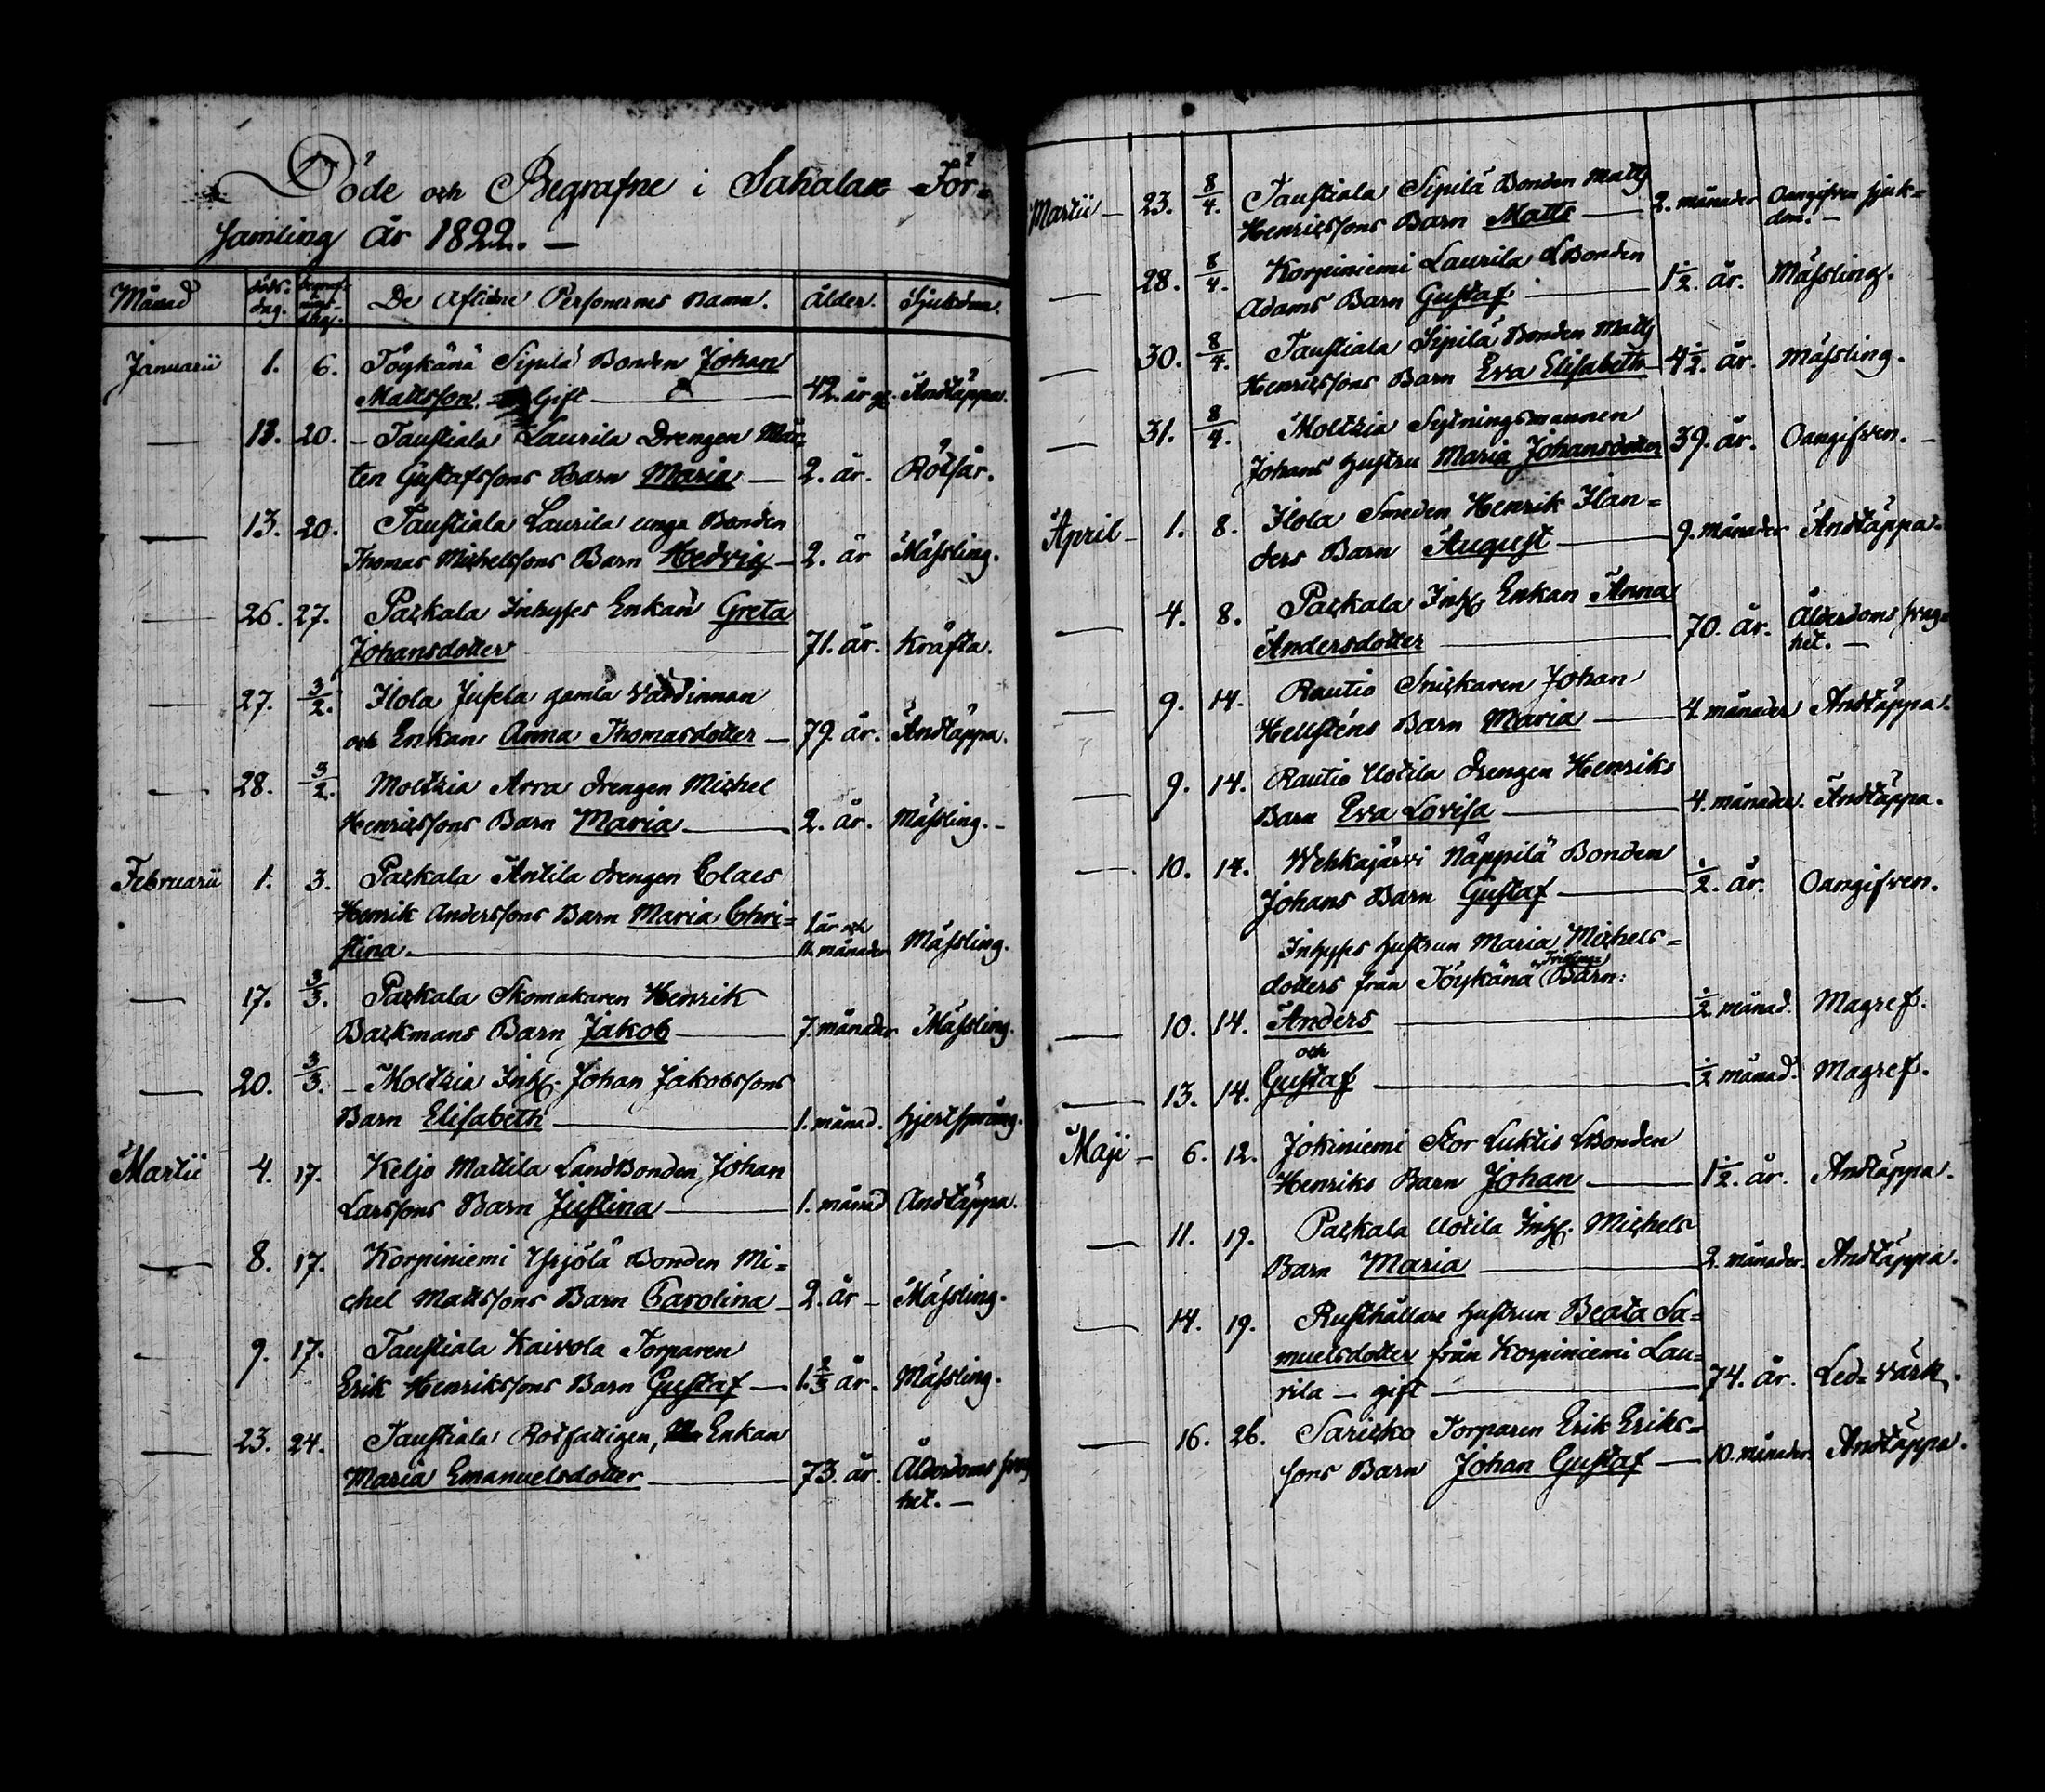 Döde och Begrafne i Sahalax För=
samling År 1822. —
Månad döds- dag. begraf- nings- dag. De Aflidne Personernes Namn. Ålder. Sjukdom.
Januarii 1. 6. Töykänä Sipilä Bonden Johan
Mattsson. Gift — 42. år g. Andtäppa.
— 13. 20. — Taustiala Laurila Drengen Mår=
ten Gustafssons Barn Maria — 2. år. Rötsår.
— 13. 20. Taustiala Laurila unga Bonden
Thomas Michelssons Barn Hedvig — 2. år Mässling.
— 26. 27. Packala Inhyses Enkan Greta
Johansdotter — 71. år. Kräfta.
— 27. 3/2. Ilola Jusela gamla Värdinnan
och Enkan Anna Thomasdotter — 79. år. Andtäppa.
— 28. 3/2. Moltzia Arra drengen Michel
Henricssons Barn Maria — 2. år. Mässling. —
Februarii 1. 3. Packala Antila drengen Claes
Henrik Anderssons Barn Maria Chri=
stina. — 1. år och 11. månader Mässling.
— 17. 3/3. Packala Skomakaren Henrik
Backmans Barn Jakob — 7. månader Mässling.
— 20. 3/3. — Moltzia Inh. Johan Jakobssons
Barn Elisabeth — 1. månad. Hjertsprång.
Martii 4. 17. Keljo Mattila Landbonden Johan
Larssons Barn Justina — 1. månad Andtäppa.
— 8. 17. Korpiniemi Yrjölä Bonden Mi=
chel Mattssons Barn Carolina — 2. år — Mässling.
— 9. 17. Taustiala Kaivola Torparen
Erik Henrikssons Barn Gustaf — 1. 2/3 år. Mässling.
— 23. 24. Taustiala Rotfattigen, Enkan
Maria Emanuelsdotter — 73. år. Ålderdoms
het. —
Martii — 23. 8/4. Taustiala Sipilä Bonden Matts
Henricssons Barn Matts — 2. månader Oangifven sjuk=
dom. —
— 28. 8/4. Korpiniemi Laurila LBonden
Adams Barn Gustaf. — 1 1/2. år. Mässling.
— 30. 8/4. Taustiala Sipilä Bonden Matts
Henricssons Barn Eva Elisabeth 4 1/2. år. Mässling.
— 31. 8/4. Moltzia Sytningsmannen
Johans hustru Maria Johansdotter 39. år. Oangifven. —
April — 1. 8. Ilola Smeden Henrik Ilan=
ders Barn August — 9. månader Andtäppa.
— 4. 8. Packala Inhs Enkan Anna
Andersdotter — 70. år. Ålderdoms svag=
het. —
— 9. 14. Rautio Snickaren Johan
Hellsténs Barn Maria — 4. månader Andtäppa.
— 9. 14. Rautio Uotila drengen Henriks
Barn Eva Lovisa — 4. månader. Andtäppa.
— 10. 14. Wehkajärvi Näppilä Bonden
Johans Barn Gustaf — 1/2. år. Oangifven.
Inhyses hustrun Maria Michels=
dotters från Töykänä Tvillings Barn:
— 10. 14. Anders — 1/2 månad. Magref.
och
— 13. 14. Gustaf — 1/2 månad. Magref.
Maji — 6. 12. Jokiniemi Stor Luktis LBonden
Henriks Barn Johan — 1 1/2. år. Andtäppa.
— 11. 19. Packala Uotila Inh. Michels
Barn Maria — 2. månader. Andtäppa.
— 14. 19. Rusthållare hustrun Beata Sa=
muelsdotter från Korpiniemi Lau=
rila — gift — 74. år. Led=värk.
— 16. 26. Saricko Torparen Erik Eriks=
sons Barn Johan Gustaf — 10. månader. Andtäppa.